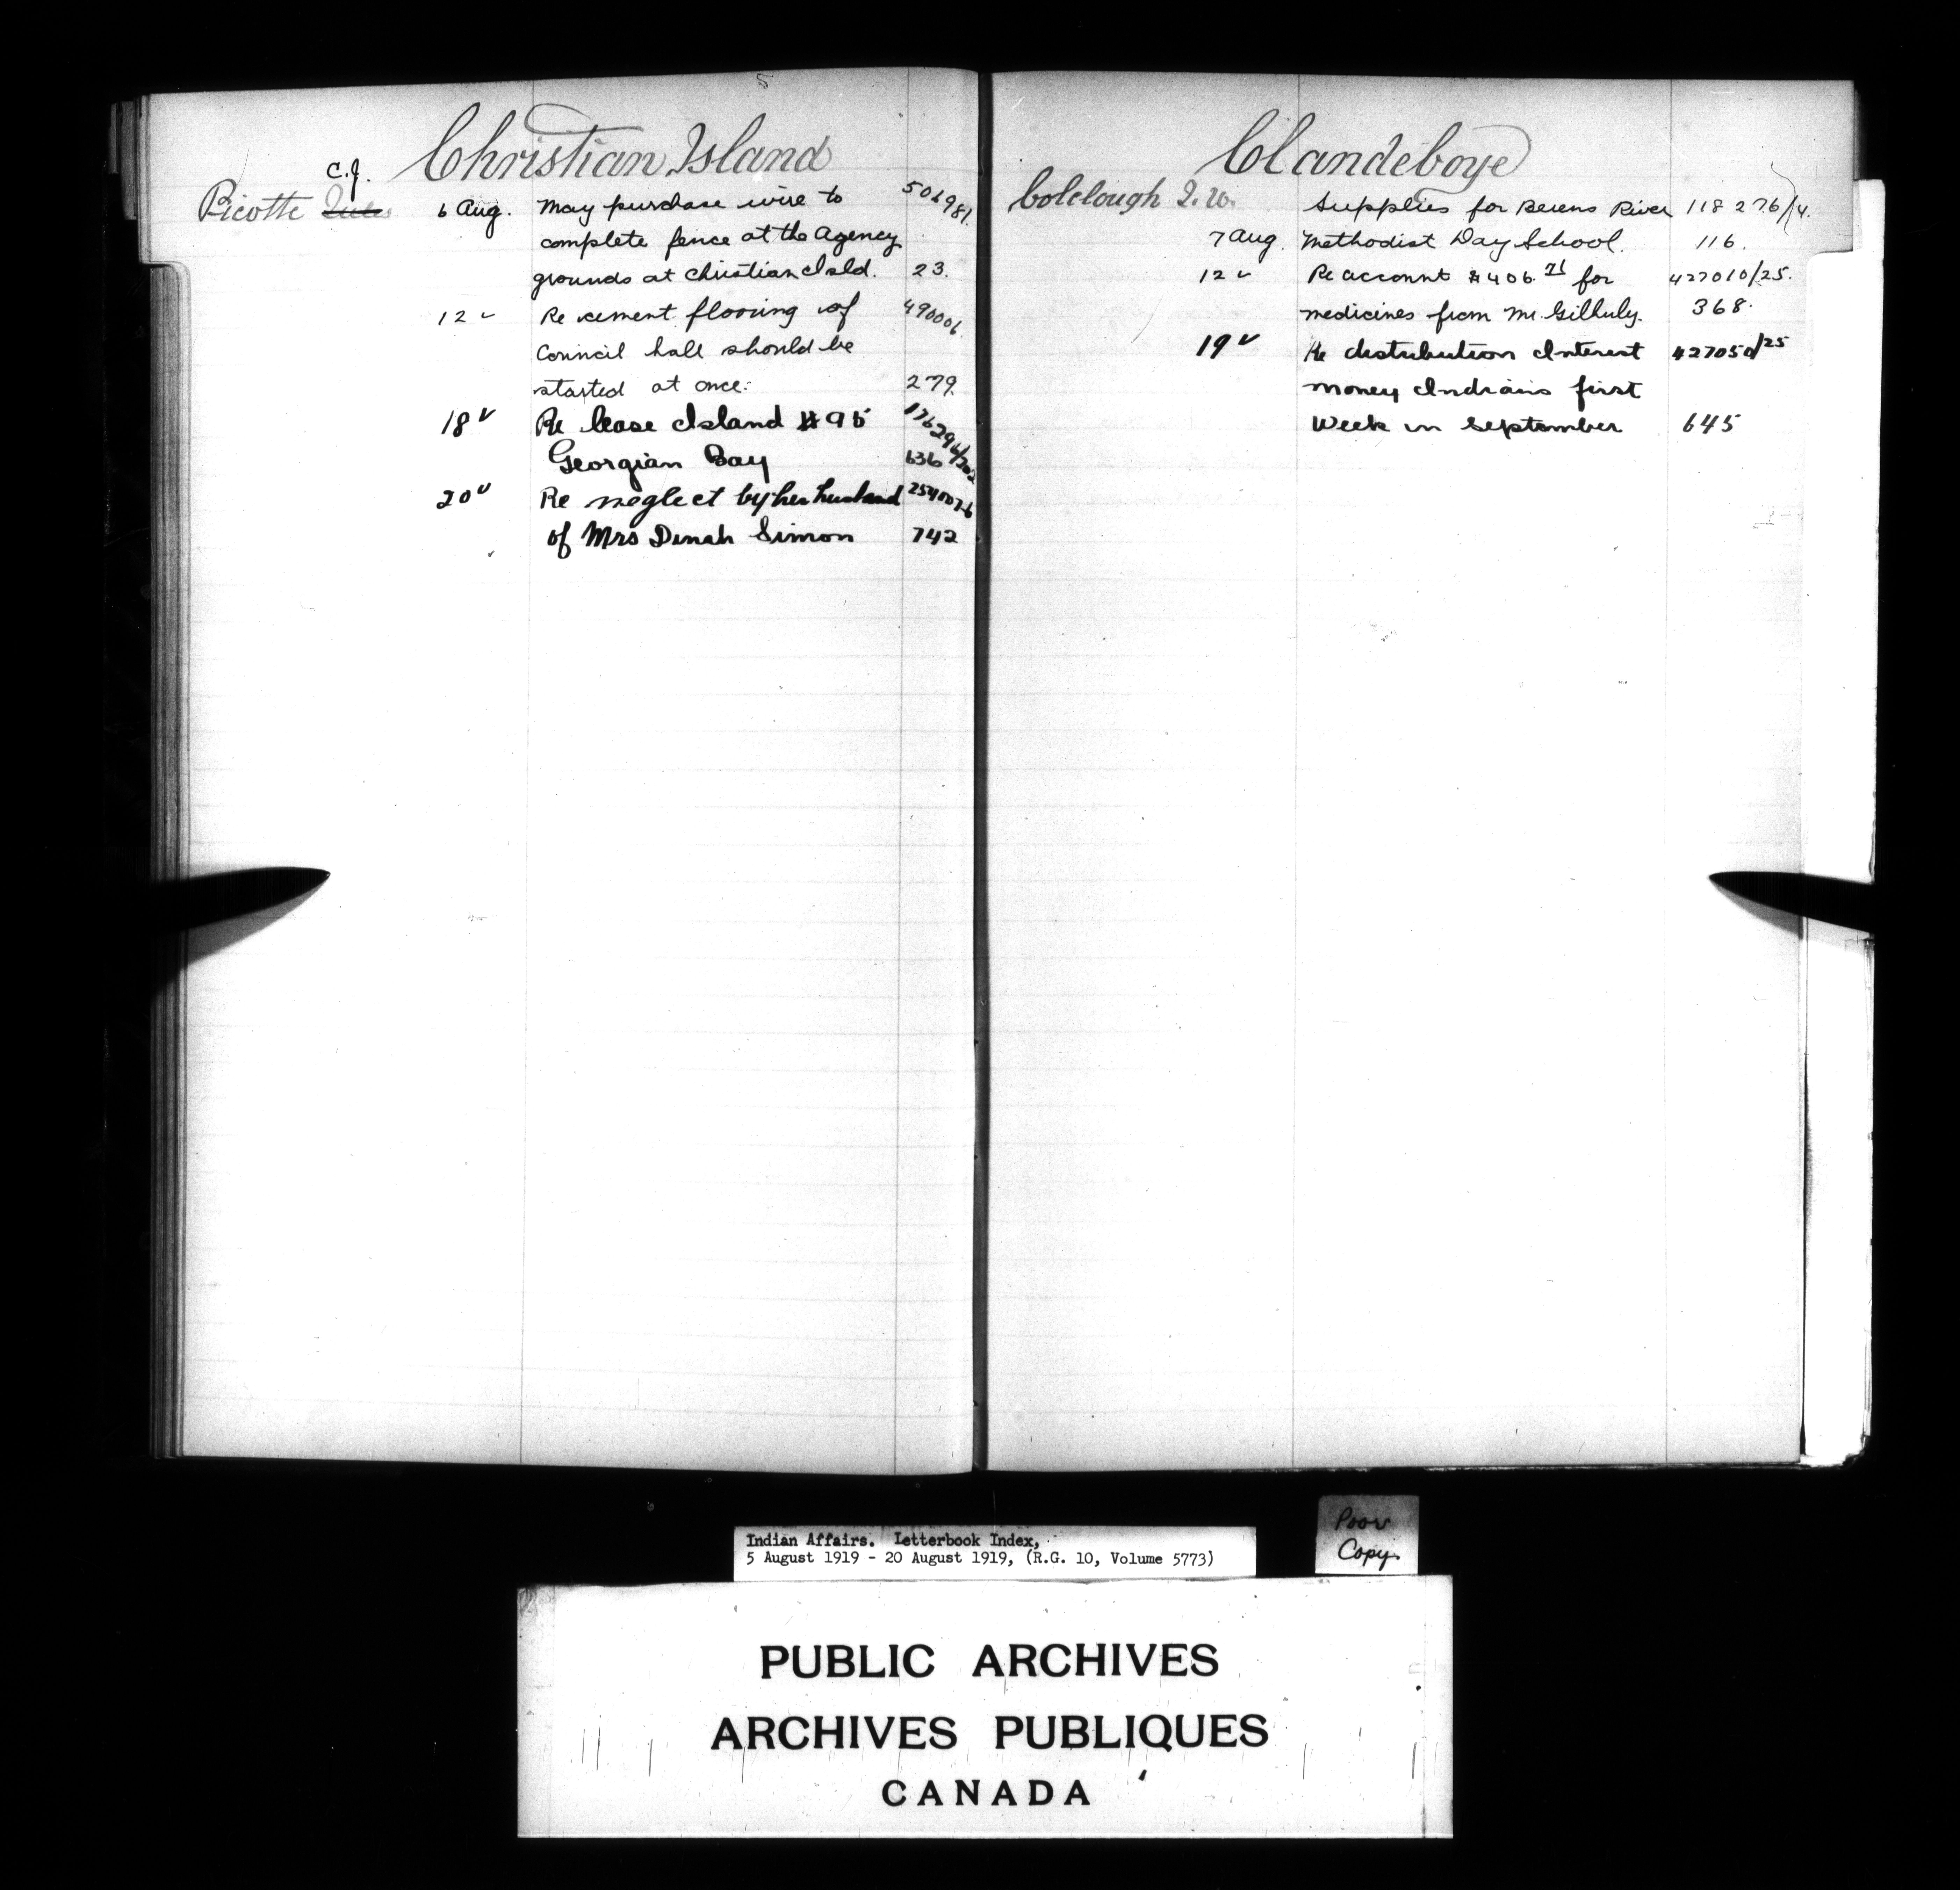 Christian Island
C.J.
Picotte Jules 6 Aug. May purchase wire to 506981.
complete fence at the Agency
grounds at Christian Isld. 23.
12 " Re cement flooring of 490006
Council hall should be
started at once. 279
18 " Re lease Island #95 176296/202
Georgian Bay 636
20 " Re neglect by her husband 254007-6
of Mrs Dinah Simon 742
Clandeboye
Colclough J.W. Supplies for Berens River 118276/14.
7 Aug. Methodist Day School. 116.
12 " Re account $406.71 for 427010/25.
medicines from Mr. Gilhuly. 368.
19 " Re distribution Interest 427050/25
money Indians first
week in September 645
Indian Affairs. Letterbook Index,
5 August 1919 - 20 August 1919, (R.G. 10, Volume 5773)
Poor
Copy
PUBLIC ARCHIVES
ARCHIVES PUBLIQUES
CANADA